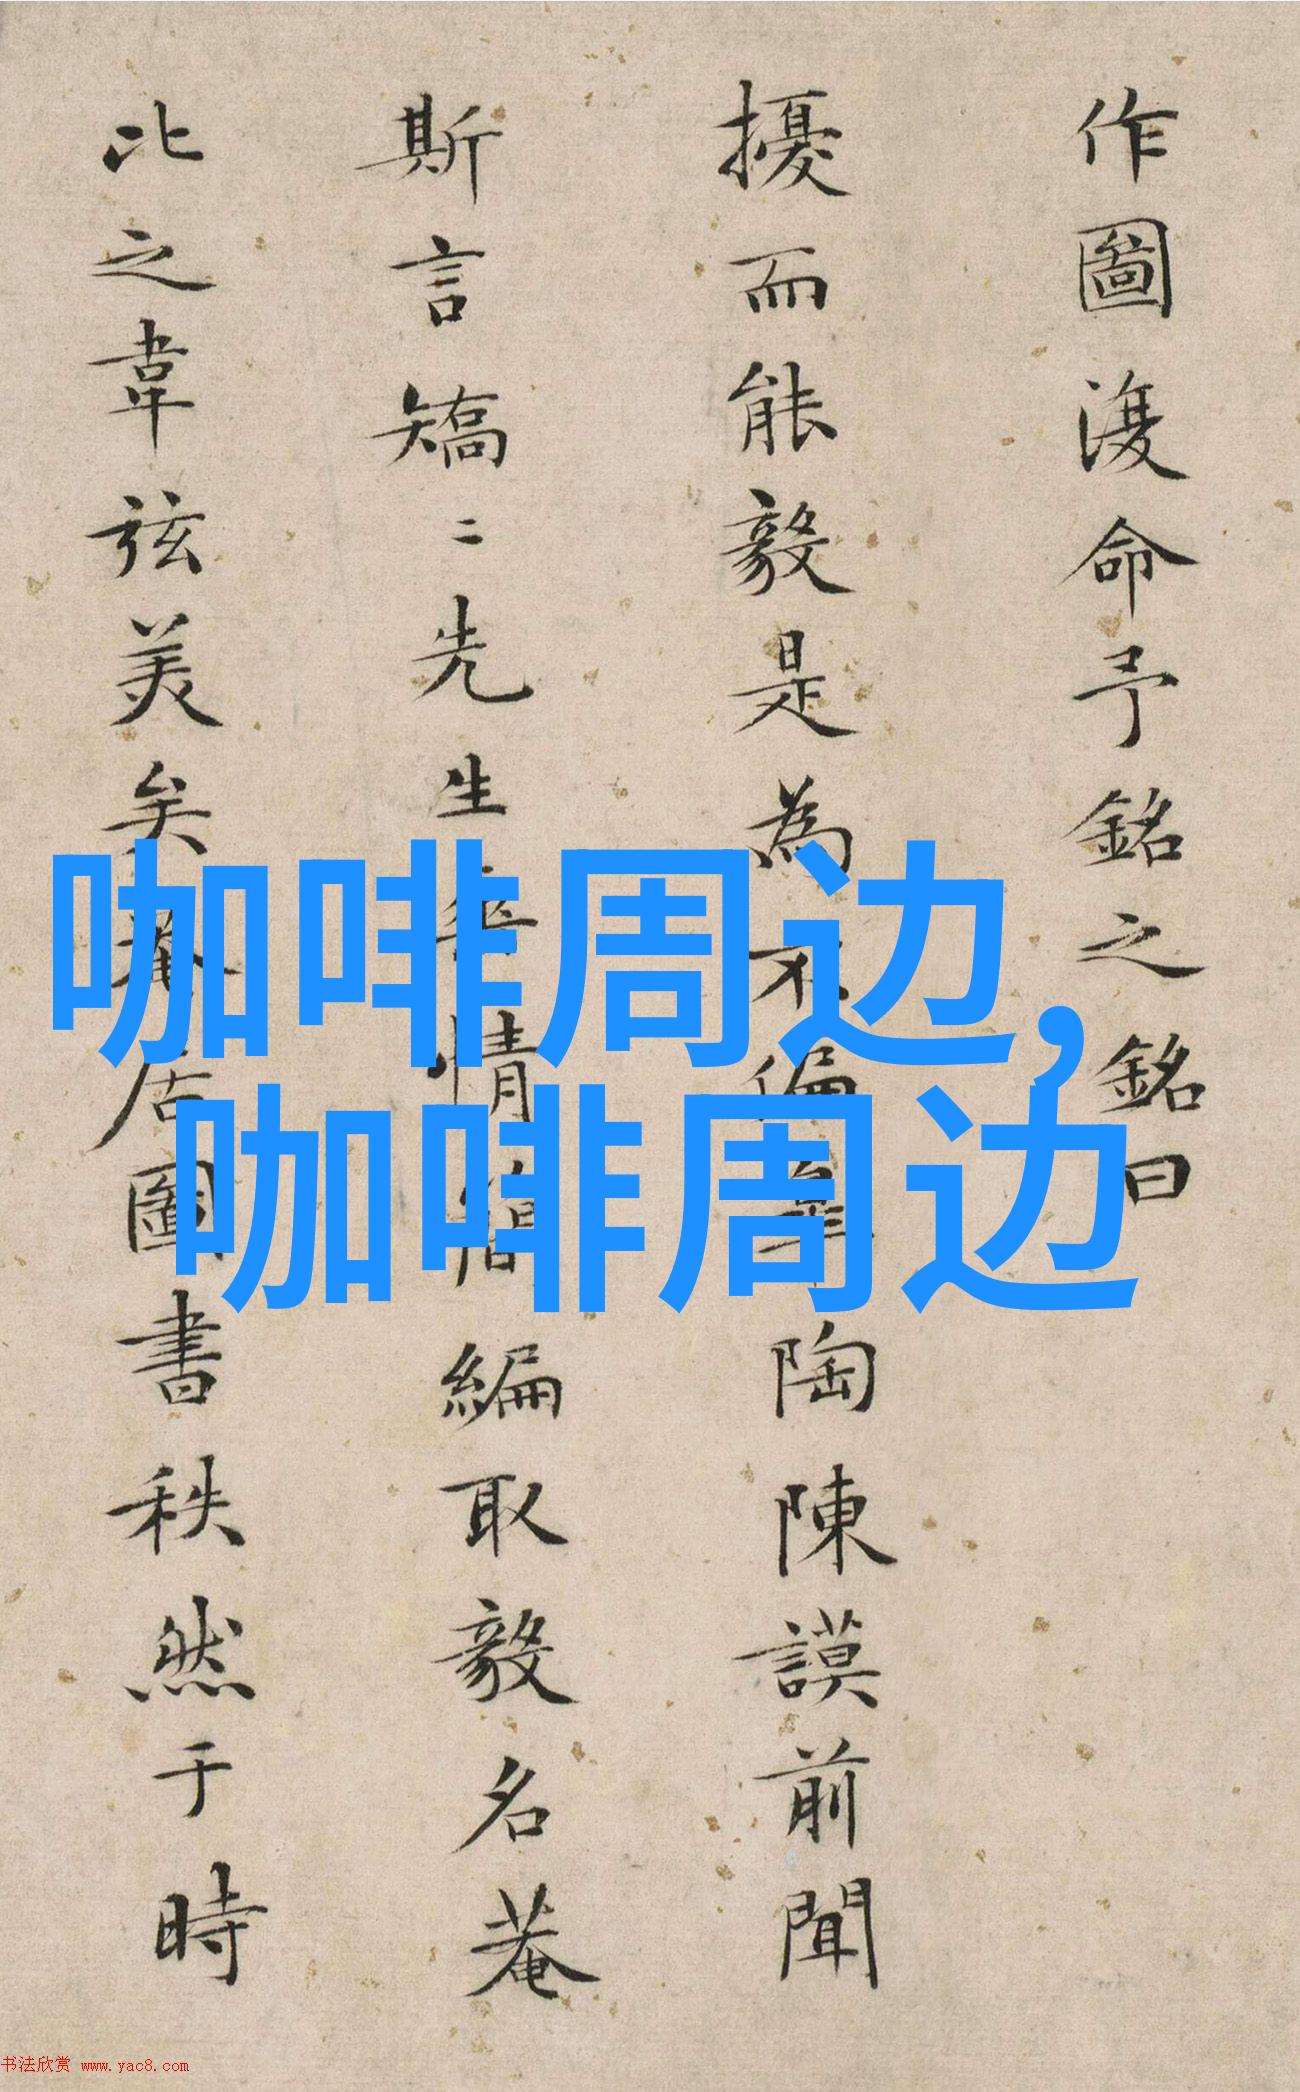 作圖復命予銘之銘曰
擾而能毅是為不偏皋陶陳謨前聞
斯言矯二先生秉情得編取毅名菴
比之韋弦美矣菴居圖書秩然于時
咖啡周边,
咖啡周边
书法欣赏 www.yac8.com